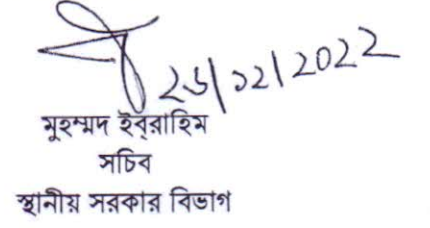 ২৬/১২/২০২২
মুহম্মদ ইব্‌রাহিম
সচিব
স্থানীয় সরকার বিভাগ